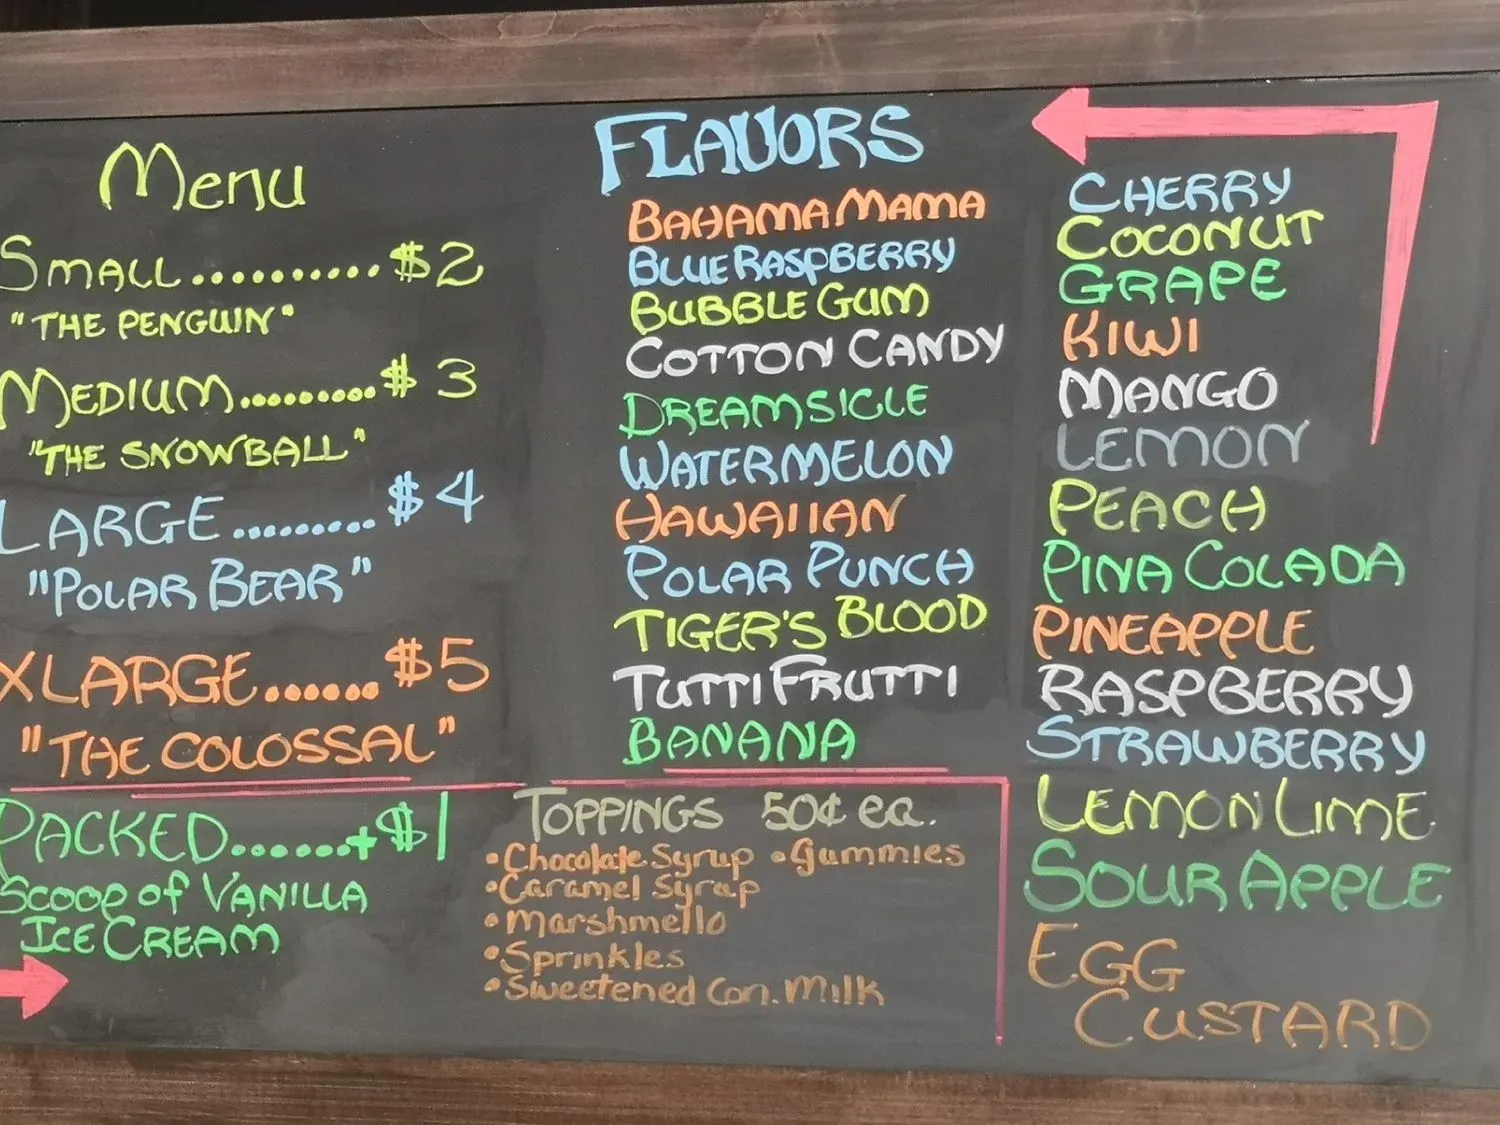 Menu
SMALL..........$2
"THE PENGUIN"
MEDIUM.........$3
"THE SNOWBALL"
LARGE.........$4
"POLAR BEAR"
XLARGE......$5
"THE COLOSSAL"
PACKED......+$1
SCOOP OF VANILLA
ICE CREAM
FLAVORS
BAHAMA MAMA
BLUE RASPBERRY
BUBBLE GUM
COTTON CANDY
DREAMSICLE
WATERMELON
HAWAIIAN
POLAR PUNCH
TIGER'S BLOOD
TUTTI FRUTTI
BANANA
CHERRY
COCONUT
GRAPE
KIWI
MANGO
LEMON
PEACH
PINA COLADA
PINEAPPLE
RASPBERRY
STRAWBERRY
LEMON LIME
SOUR APPLE
EGG
CUSTARD
TOPPINGS 50¢ ea.
•Chocolate Syrup •Gummies
•Caramel Syrup
•Marshmello
•Sprinkles
•Sweetened Con. Milk